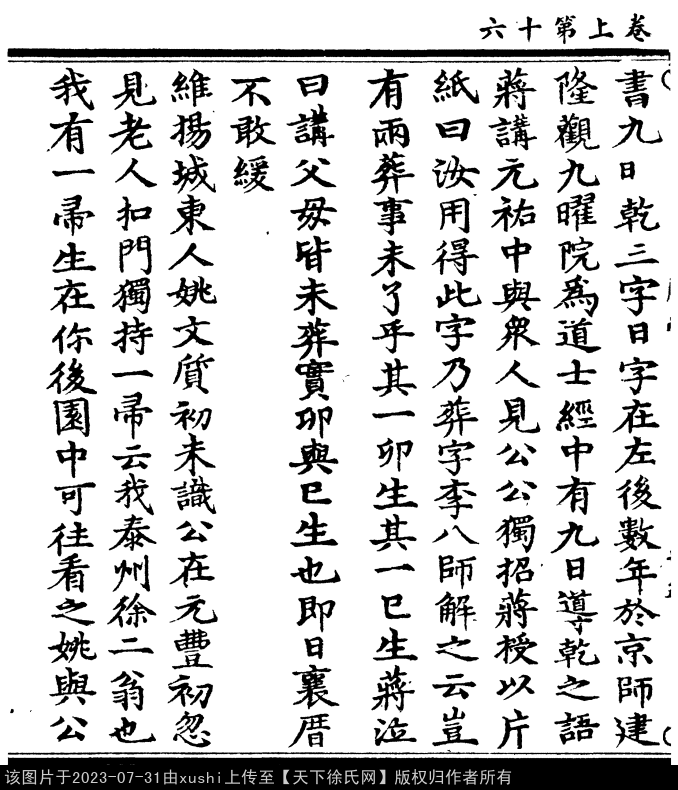 卷上第十六
書九日乾三字日字在左後數年於京師建
隆觀九曜院為道士經中有九日導乾之語
蔣講元祐中與衆人見公公獨招蔣授以片
紙曰汝用得此字乃葬字李八師解之云豈
有兩葬事未了乎其一卯生其一巳生蔣泣
曰講父毋皆未葬實卯與巳生也即日襄厝
不敢緩
維揚城東人姚文質初未識公在元豐初忽
見老人扣門獨持一帚云我泰州徐二翁也
我有一帚生在你後園中可往看之姚與公
该图片于2023-07-31由xushi上传至【天下徐氏网】版权归作者所有